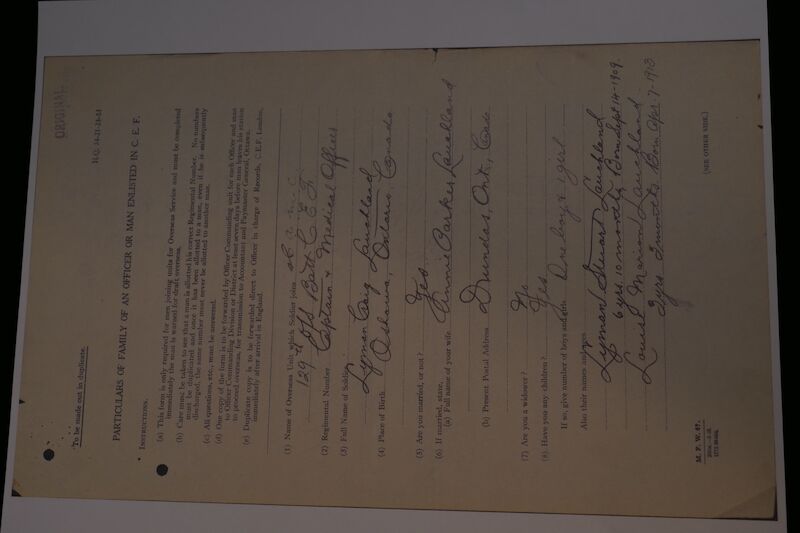 To be made out in duplicate.
ORIGINAL
H.Q. 54-21-24-51
PARTICULARS OF FAMILY OF AN OFFICER OR MAN ENLISTED IN C. E. F.
INSTRUCTIONS.
(a) This form is only required for men joining units for Overseas Service and must be completed
immediately the man is warned for draft overseas.
(b) Care must be taken to see that a man is allotted his correct Regimental Number. No numbers
must be duplicated and once it has been allotted to a man, even if he is subsequently
discharged, the same number must never be allotted to another man.
(c) All questions, etc., must be answered.
(d) One copy of the form is to be forwarded by Officer Commanding unit for each Officer and man
to Officer Commanding Division or District at least seven days before men leaves his station
to proceed overseas, for transmission to Accountant and Paymaster General, Ottawa.
(e) Duplicate copy is to be forwarded direct to Officer in charge of Records, C.E.F. London,
immediately after arrival in England.
(1) Name of Overseas Unit which Soldier joins
129th Batt C.E.F.
(2) Regimental Number Captain & Medical Officer
(3) Full Name of Soldier Lyman Craig Lauchland
(4) Place of Birth Oshawa, Ontario, Canada
(5) Are you married, or not? Yes
(6) If married, state,
(a) Full name of your wife Annie Parker Lauchland
(b) Present Postal Address Dundas, Ont., Can.
(7) Are you a widower? No
(8) Have you any children? Yes
If so, give number of boys and girls One boy & 1 girl
Also their names and ages
Lyman Stuart Lauchland
6 yrs. 10 months Born Sept 14-1909.
Louise Marion Lauchland
3 yrs. 3 months Born Apr. 7-1913
M. F. W. 67.
(SEE OTHER SIDE.)